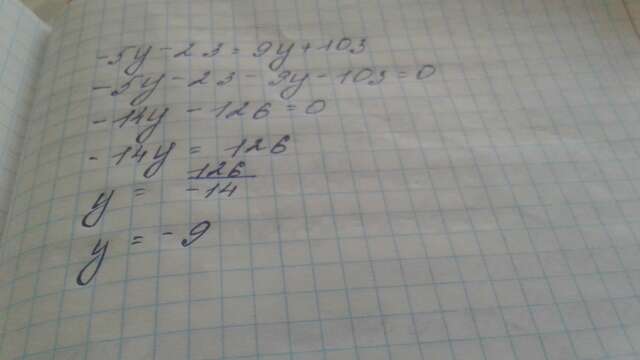 -5y-23=9y+103
-5y-23-9y-103=0
-14y-126=0
-14y=126
y=126/-14
y=-9